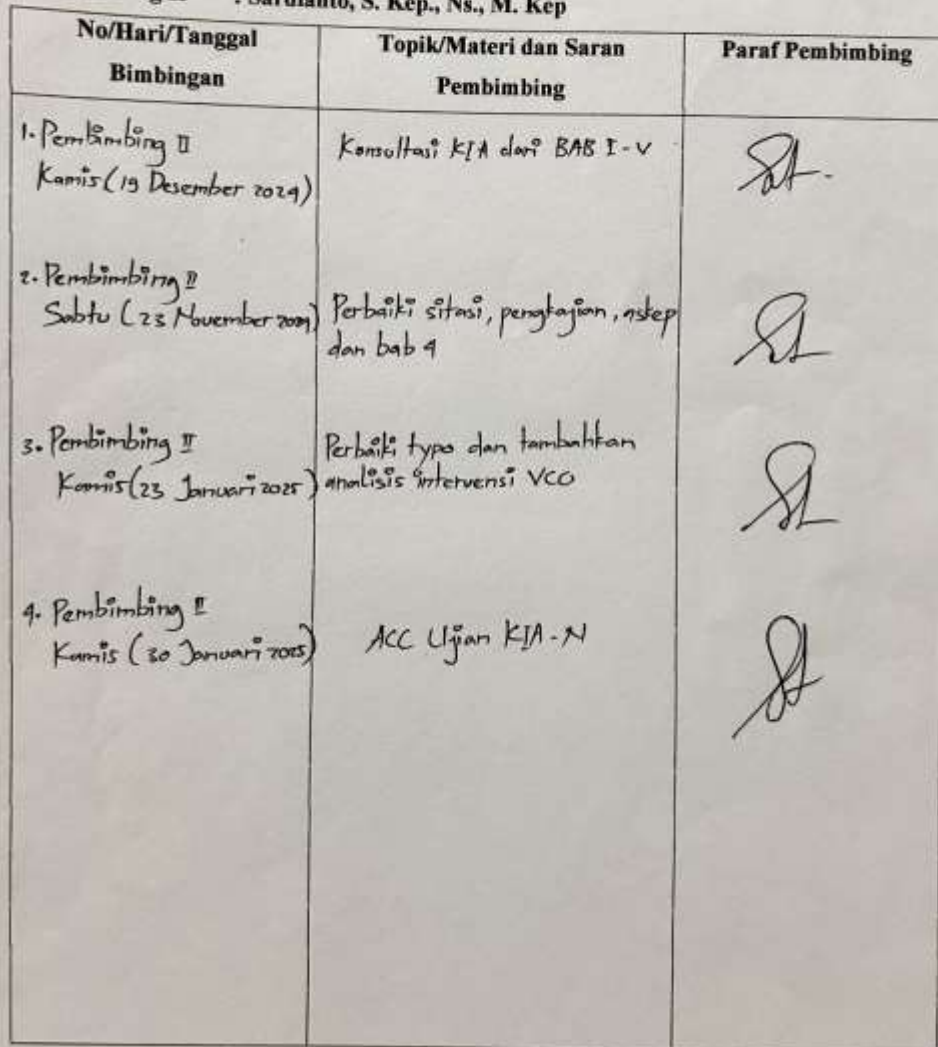 : Sardianto, S. Kep., Ns., M. Kep
No/Hari/Tanggal
Bimbingan
Topik/Materi dan Saran
Pembimbing
Paraf Pembimbing
1. Pembimbing II
Kamis (19 Desember 2024)
Konsultasi KIA dari BAB I - V
2. Pembimbing II
Sabtu (23 November 2024)
Perbaiki sitasi, pengkajian, askep
dan bab 4
3. Pembimbing II
Kamis (23 Januari 2025)
Perbaiki typo dan tambahkan
analisis intervensi VCO
4. Pembimbing II
Kamis (30 Januari 2025)
ACC Ujian KIA-N